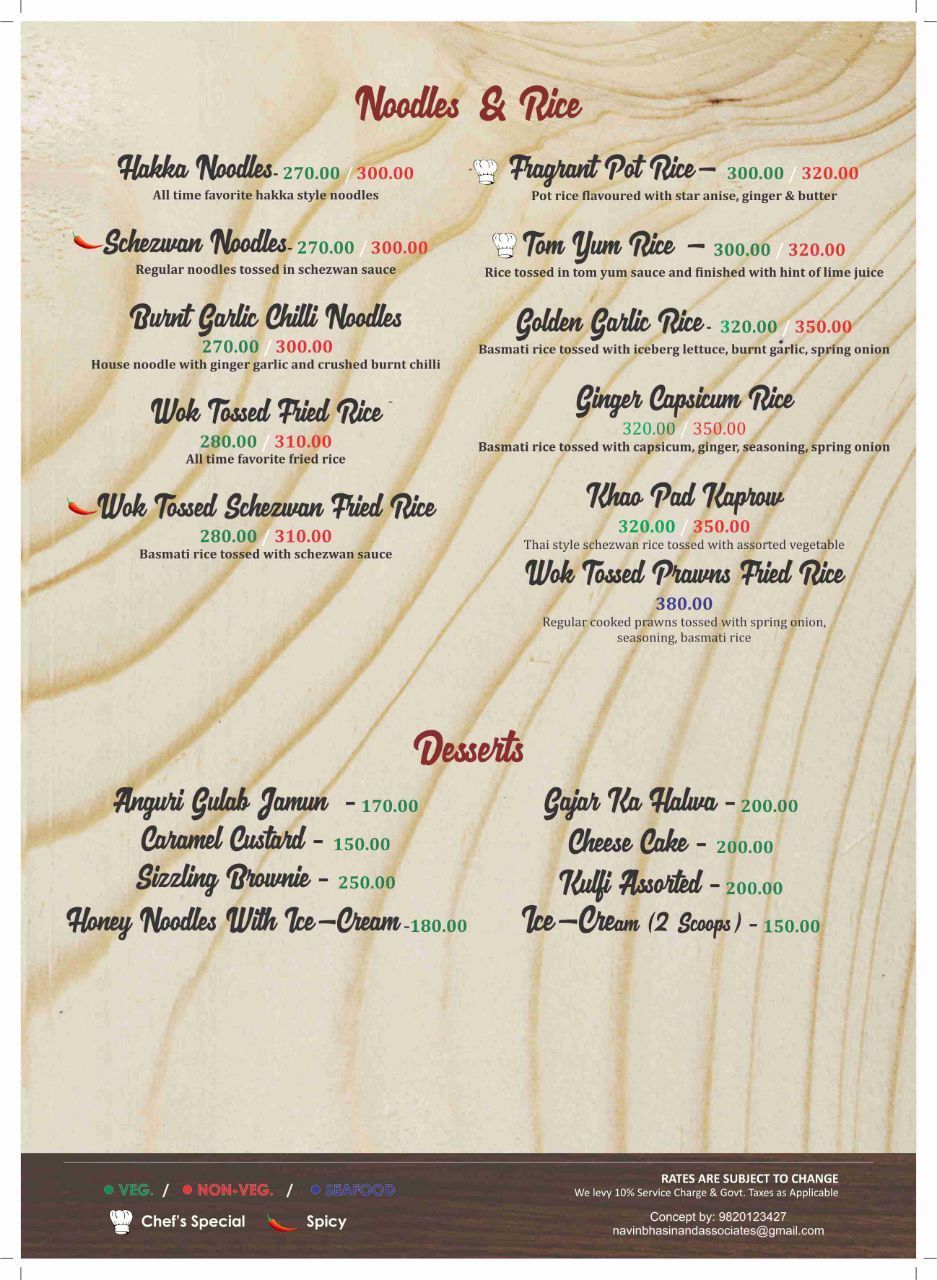 Noodles & Rice
Hakka Noodles- 270.00 / 300.00
All time favorite hakka style noodles
Schezwan Noodles- 270.00 / 300.00
Regular noodles tossed in schezwan sauce
Burnt Garlic Chilli Noodles
270.00 / 300.00
House noodle with ginger garlic and crushed burnt chilli
Wok Tossed Fried Rice
280.00 / 310.00
All time favorite fried rice
Wok Tossed Schezwan Fried Rice
280.00 / 310.00
Basmati rice tossed with schezwan sauce
Fragrant Pot Rice – 300.00 / 320.00
Pot rice flavoured with star anise, ginger & butter
Tom Yum Rice – 300.00 / 320.00
Rice tossed in tom yum sauce and finished with hint of lime juice
Golden Garlic Rice- 320.00 / 350.00
Basmati rice tossed with iceberg lettuce, burnt garlic, spring onion
Ginger Capsicum Rice
320.00 / 350.00
Basmati rice tossed with capsicum, ginger, seasoning, spring onion
Khao Pad Kaprow
320.00 / 350.00
Thai style schezwan rice tossed with assorted vegetable
Wok Tossed Prawns Fried Rice
380.00
Regular cooked prawns tossed with spring onion,
seasoning, basmati rice
Desserts
Anguri Gulab Jamun - 170.00
Caramel Custard - 150.00
Sizzling Brownie - 250.00
Honey Noodles With Ice-Cream -180.00
Gajar Ka Halwa - 200.00
Cheese Cake - 200.00
Kulfi Assorted - 200.00
Ice-Cream (2 Scoops) - 150.00
VEG. / NON-VEG. / SEAFOOD
Chef's Special Spicy
RATES ARE SUBJECT TO CHANGE
We levy 10% Service Charge & Govt. Taxes as Applicable
Concept by: 9820123427
navinbhasinandassociates@gmail.com